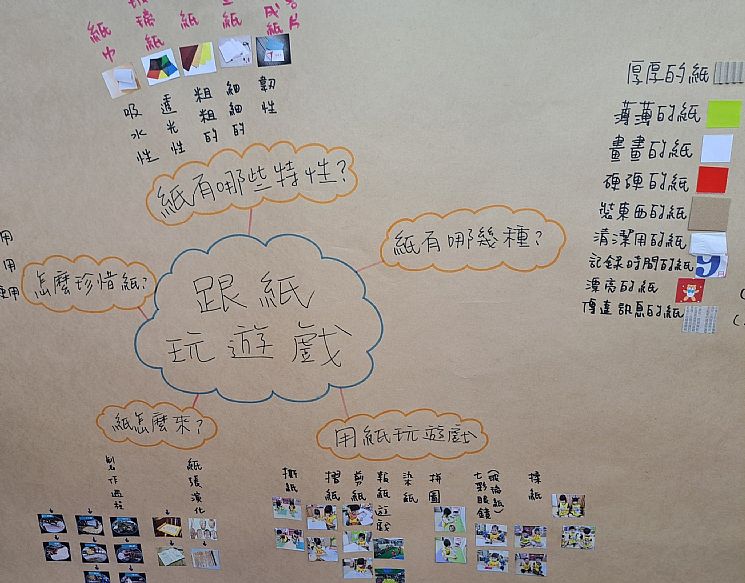 紙巾
玻璃紙
紙
紙
吸水性
透光性
粗粗的
細細的
韌性
紙有哪些特性?
紙有哪幾種?
厚厚的紙
薄薄的紙
畫畫的紙
硬硬的紙
裝東西的紙
清潔用的紙
記錄時間的紙
9
漂亮的紙
傳達訊息的紙
用
用
使用
怎麼珍惜紙?
跟紙
玩遊戲
紙怎麼來?
製作過程
紙張演化
用紙玩遊戲
撕紙
摺紙
剪紙
報紙遊戲
染紙
拼圖
七彩眼鏡
(玻璃紙)
揉紙